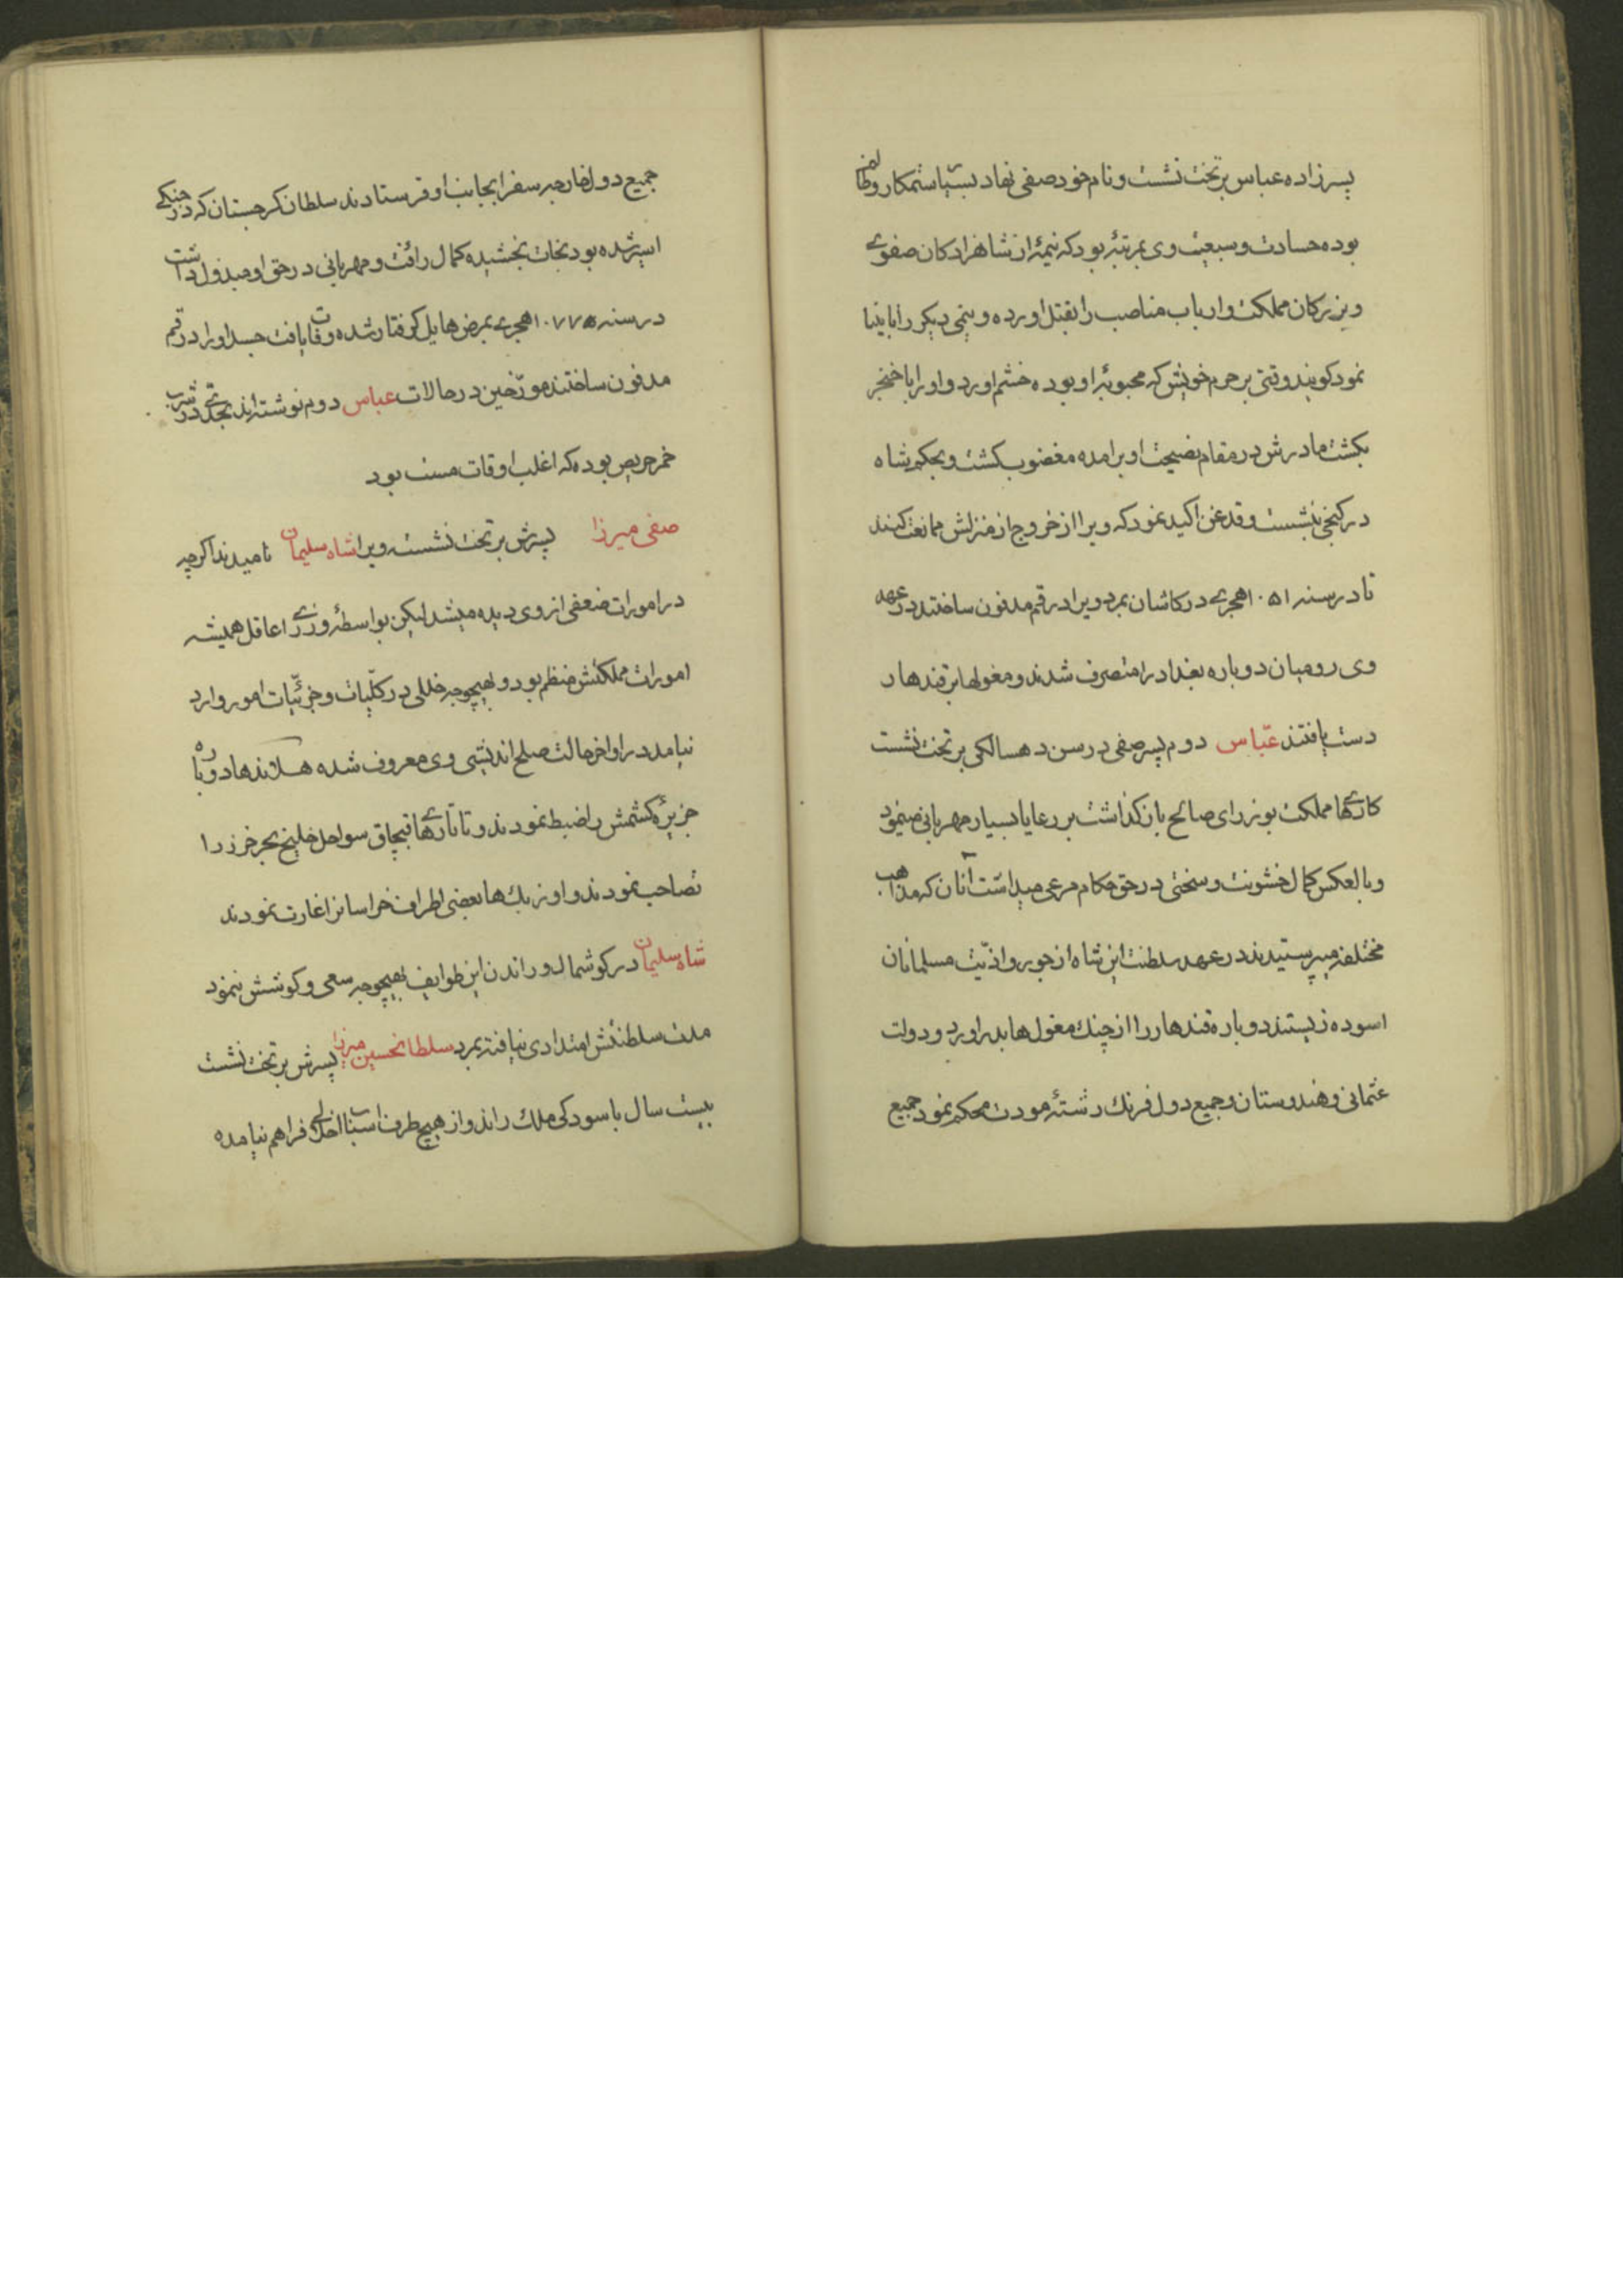 پسرزاده عباس بر تخت نشست و نام خود صفی نهاد بسیار ستمکار و ظالمی
بوده حسادت و سبعیت وی بمرتبهٔ بود که نیمهٔ از شاهزادکان صفوی
و بزرکان مملکت و ارباب مناصب را بقتل اورده و نیمی دیکر را نابینا
نمود کویند وقتی بر حرم خویش که محبوبهٔ او بوده خشم اورد و او را با خنجر
بکشت مادرش در مقام نصیحت او برامده مغضوب کشت و بحکم شاه
در کنجی بنشست و قدغن اکید نمود که ویرا از خروج از منزلش ممانعت کنند
تا در سنه ۱۰۵۱ هجری در کاشان بمرد ویرا در قم مدفون ساختند در عهد
وی رومیان دوباره بغداد را متصرف شدند و مغولها بر قندهار
دست یافتند عبّاس دوم پسر صفی در سن ده سالکی بر تخت نشست
کارهای مملکت بوزرای صالح باز کذاشت بر رعایا بسیار مهربانی مینمود
و بالعکس کمال خشونت و سختی در حق حکام مرعی میداشت آنان که مذاهب
مختلفه میپرستیدند در عهد سلطنت این شاه از جور و اذیّت مسلمانان
اسوده زیستند دوباره قندهار را از چنك مغولها بدر اورد و دولت
عثمانی و هندوستان و جمیع دول فرنك رشتهٔ مودت محکم نمود جمیع
جمیع دول خارجه سفرا بجانب او فرستادند سلطان کرجستان که در جنکی
اسیر شده بود نجات بخشیده کمال رافت و مهربانی در حق او مبذول داشت
در سنه ۱۰۷۷ هجری بمرض هایل کرفتار شده وفات یافت جسد او را در قم
مدفون ساختند مورّخین در حالات عباس دوم نوشته‌اند بحدّی در شرب
خمر حریص بوده که اغلب اوقات مست بود
صفی میرزا پسرش بر تخت نشست ویرا شاه سلیمان نامیدند اکرچه
در امورات ضعفی از وی دیده میشد لیکن بواسطهٔ وزرای عاقل همیشه
امورات مملکتش منظم بود و بهیچوجه خللی در کلّیات و جزئیّات امور وارد
نیامد در اواخر حالت صلح اندیشی وی معروف شده هلاندها دوباره
جزیرهٔ کشمش را ضبط نمودند و تاتارهای قبچاق سواحل خلیج بحر خزر را
تصاحب نمودند و اوزبك‌ها بعضی اطراف خراسانرا غارت نمودند
شاه سلیمان در کوشمال و راندن این طوایف بهیچوجه سعی و کوشش ننمود
مدت سلطنتش امتدادی نیافته بمرد سلطانحسین میرزا پسرش بر تخت نشست
بیست سال باسودکی ملك راند و از هیچ طرف اسباب اخلالی فراهم نیامده